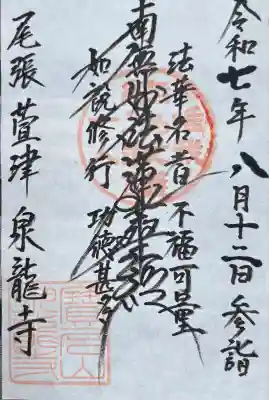 令和七年八月十二日参詣
法華名者 不福可量
南無妙法蓮華経
如説修行 功徳甚多
尾張萱津 泉龍寺